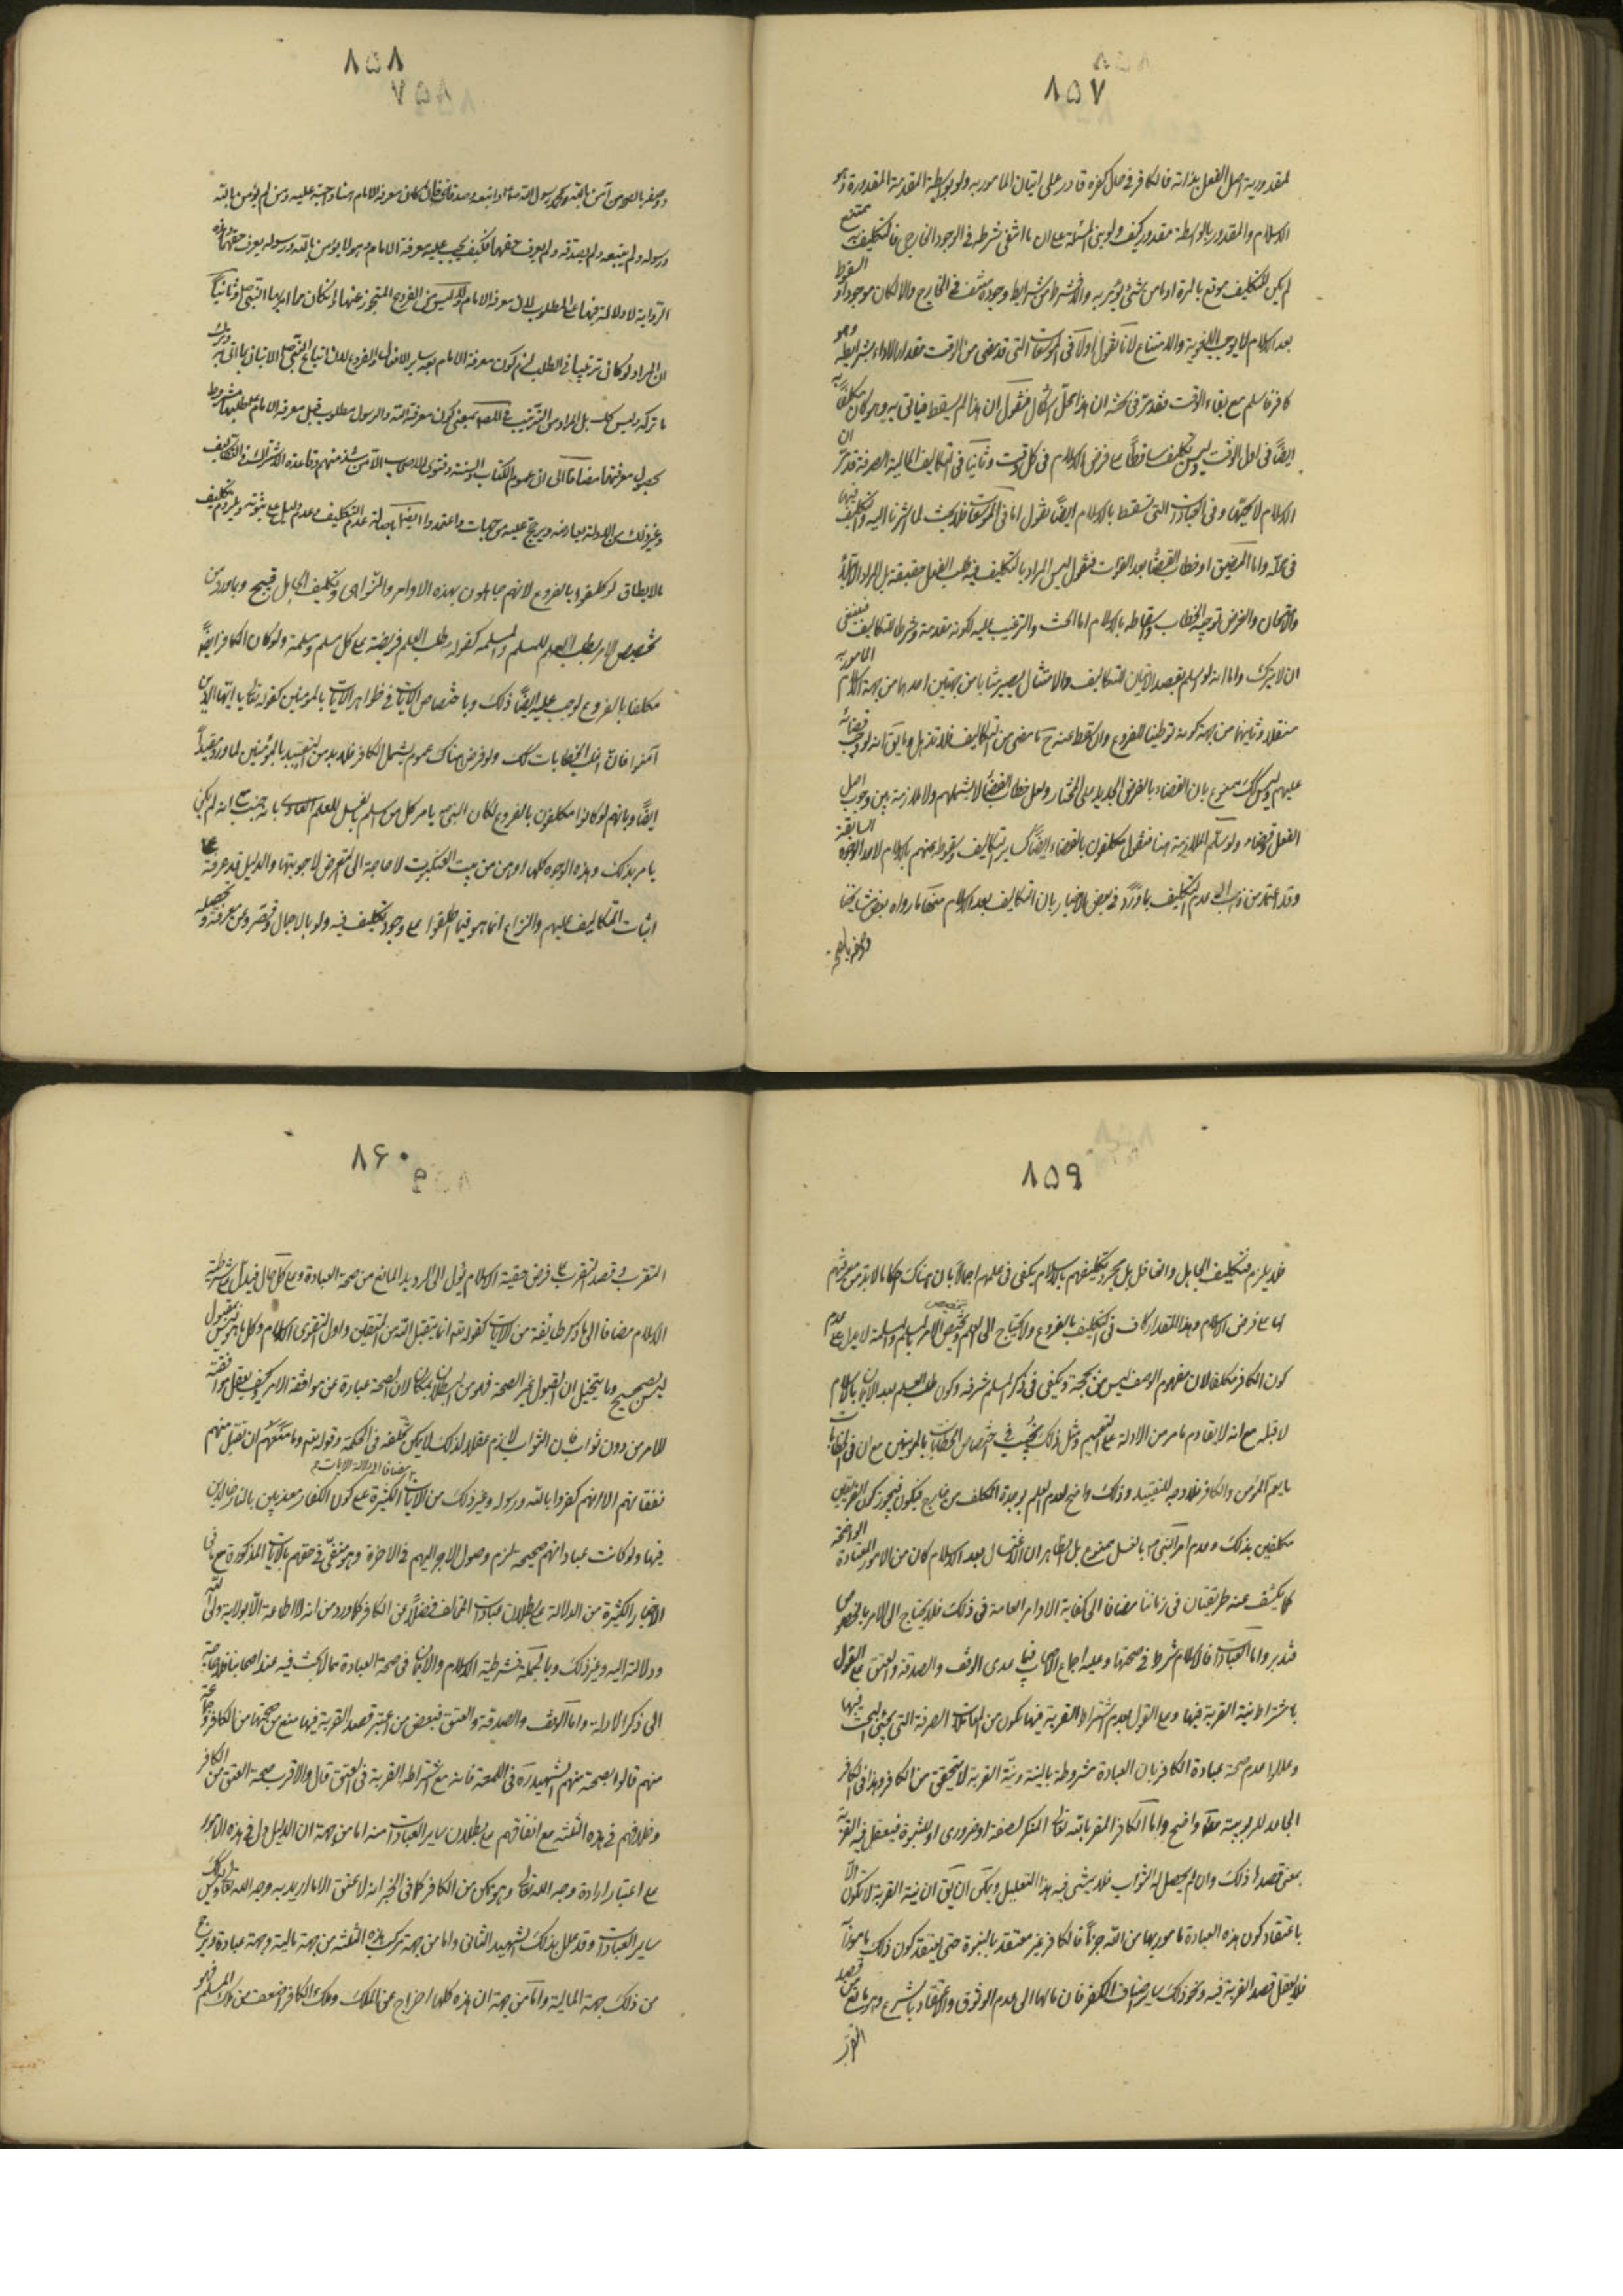 ٨٥٧
لمقدورية اصل الفعل بذاته فالكافر في حال كفره قادر على اتيان المامور به ولو بواسطة المقدمة المقدورة وهو
الاسلام والمقدور بالواسطة مقدور كيف ولو بنى المسئلة على ان ما انتفى شرطه في الوجود الخارجى فالتكليف به ممتنع
لم يكن للتكليف موقع بالمرة اذ ما من شئ يؤمر به والا شرط من شرايط وجوده منتف في الخارج والا لكان موجودا والسقوط
بعد الاسلام لا يوجب اللغوية والامتناع لانا نقول اولا في الموسعات التى قد مضى من الوقت مقدار الاداء بشرايطه وهو
كافر فاسلم مع بقاء الوقت فقد مر في بحثه ان هذا محل اشكال فنقول ان هذا لم يسقط فياتى به وهو كان مكلفا به
ايضا في اول الوقت وليس تكليف ساقطا مع فرض الاسلام في كل وقت وثانيا في التكاليف المالية الصرفة قد مر ان
الاسلام لا يجبها وفى العبادات التى تسقط بالاسلام ايضا نقول اما في الموسعات فلا بحث لما اشرنا اليه والتكليف فيها
في محله واما المضيق او خطاب القضاء بعد الفوات فنقول ليس المراد بالتكليف فيه طلب الفعل حقيقة بل المراد الابتلاء
والامتحان والغرض توجيه الخطاب واسقاطه بالاسلام اما الحث والترغيب اليه لكونه مقدمة وشرطا للتكاليف فينبغى
ان لا يترك واما انه لو اسلم بقصد الاتيان للتكاليف والامتثال يصير مثابا من جهتين احدهما من جهة الاسلام المامور به
مستقلا وثانيهما من جهة كونه توطينا للفروع وان سقط عنه ح ما مضى من التكاليف فلا تذهل وما يق انه لو وجب قضائه
عليهم وليس كك ممنوع بان القضاء بالفرض الجديد على المختار ولعل خطاب القضاء لا يشملهم ولا ملازمة بين وجوب اصل
الفعل وقضاه ولو سلم الملازمة هنا فنقول مكلفون بالقضاء ايضا كساير التكاليف وسقوطه عنهم بالاسلام لاحد الوجوه السابقة
وقد اعتمد من ذهب الى عدم التكليف بما ورد في بعض الاخبار بان التكاليف بعد الاسلام منها ما رواه بعض مشايخنا
ووصفه بالصحة
٨٥٨
ووصفه بالصحة من آمن بالله وبمحمد رسول الله ص واتبعه وصدقه فان كان معرفة الامام منا واجبة عليه ومن لم يؤمن بالله
ورسوله ولم يتبعه ولم يصدقه ولم يعرف حقهما فكيف يجب عليه معرفة الامام وهو لا يؤمن بالله ورسوله ويعرف حقهما وهذه
الرواية لا دلالة فيها على المطلوب لان معرفة الامام ليس من الفروع المبحوث عنها وان كان مما امر بها النبى ص وثانيا
ان المراد لو كان ترتيبا في الطلب لزم كون معرفة الامام بعد ساير الافعال والفروع لان اتباع النبى ص الاتيان بما اتى به وترك
ما تركه وليس كك بل المراد من الترتيب في النص بمعنى كون معرفة الله والرسول مطلوب قبل معرفة الامام ع لطلبها مشروط
بحصول معرفتهما مضافا الى ان عموم الكتاب والسنة وفتوى الاصحاب الا من شذ منهم وقاعدة الاشتراك في التكاليف
وغير ذلك من الادلة يعارضه ويرجح عليه من جهات واعتمدوا ايضا باصالة عدم التكليف وعدم دليل على ثبوته ويلزوم تكليف
مالايطاق لو كلفوا بالفروع لانهم جاهلون بهذه الاوامر والنواهى وتكليف الجاهل قبيح وبما ورد من
تخصيص الامر بطلب العلم للمسلم والمسلمة كقوله طلب العلم فريضة على كل مسلم ومسلمة ولو كان الكافر ايضا
مكلفا بالفروع لوجب عليه ايضا ذلك وباختصاص الايات في ظواهر الايات بالمؤمنين كقوله تعالى يا ايها الذين
آمنوا فان اغلب الخطابات كك ولو فرض هناك عموم يشمل الكافر فلا بد من التقييد بالمؤمنين لما ورد مقيدا
ايضا وبانهم لو كانوا مكلفون بالفروع لكان النبى ص يامر كل من اسلم بغسل للعلم العادى بانه جنب مع انه لم يكن
يامر بذلك وهذه الوجوه كلها اوهن من بيت العنكبوت لا حاجة الى التعرض لاجوبتها والدليل قد عرفته على
اثبات التكاليف عليهم والنزاع انما هو فيما اطلعوا على وجود تكليف فيه ولو بالاجمال وقصروا عن معرفته وتحصيله
٨٥٩
فلا يلزم تكليف الجاهل والغافل بل مجرد تكليفهم بالاسلام يكفى في علمهم اجمالا بان هناك احكاما لا بد من معرفتهم
لها على فرض الاسلام وهذا المقدار كاف في التكليف بالفروع ولا يحتاج الى العلم وتخصيص الامر بالمسلم والمسلمة لا يدل على عدم
كون الكافر مكلفا لان مفهوم الوصف ليس بحجة ويكفى في ذكر المسلم شرفه وكون طلب العلم بعد الايمان بالاسلام
لا قبله مع انه لا يقاوم ما مر من الادلة على التعميم ومثل ذلك يجئ في اختصاص الخطابات بالمؤمنين مع ان في الخطابات
ما يعم المؤمن والكافر فلا وجه للتقييد وذلك واضح لعدم العلم بوحدة المكلف من خارج فيكون فيجوز كون الفريقين
مكلفين بذلك وعدم امر النبى ص بالغسل ممنوع بل الظاهر ان الاغتسال بعد الاسلام كان من الامور المعتادة الواضحة
كما يكشف عنه طريقتان في زماننا مضافا الى كفاية الاوامر العامة في ذلك فلا يحتاج الى الامر بالخصوص
فتدبر واما العبادات فالاسلام شرط في صحتها وعليه اجماع الاصحاب فيما عدى الوقف والصدقة والعتق على القول
باشتراط نية القربة فيها ومع القول بعدم اشتراط القربة فيها تكون من المعاملات الصرفة التى يجئ البحث فيها
وعللوا عدم صحة عبادة الكافر بان العبادة مشروطة بالنية ونية القربة لا يتحقق من الكافر وهذا في الكافر
الجاحد للربوبية معا واضح واما الكافر المقر بالله تعالى المنكر لصفة او ضرورى او للنبوة فيعقل فيه القربة
بمعنى قصدها ذلك وان لم يحصل له الثواب فلا يتمشى فيه هذا التعليل ويمكن ان يق ان نية القربة لا تكون الا
باعتقاد كون هذه العبادة مامور بها من الله جزما فالكافر غير معتقد بالنبوة حتى يعتقد كون ذلك مامورا
فلا يعقل قصد القربة فيه ونحو ذلك ساير اصناف الكفر فان مالها الى عدم الوثوق والاعتقاد بالشرع وهو مانع من قصد
التقرب
٨۶٠
التقرب وقصد التقرب على فرض حقية الاسلام يؤل الى الترديد المانع من صحة العبادة وعلى كل حال فيدل على شرطية
الاسلام مضافا الى ما ذكر طايفة من الايات كقوله تعه انما يتقبل الله من المتقين واول التقوى الاسلام وكل ما ليس بمقبول
ليس بصحيح وما يتخيل ان القبول غير الصحة فهو من البطلان بمكان لان الصحة عبارة عن موافقة الامر وكيف يعقل موافقته
للامر من دون ثواب فان الثواب لازم عقلا لذلك لا يمكن تخلفه في الحكمة وقوله تعه وما منعهم ان تقبل منهم
نفقاتهم الا انهم كفروا بالله ورسوله وغير ذلك من الايات الكثيرة على كون الكفار معذبين بالنار خالدين
فيها ولو كانت عباداتهم صحيحة لزم وصول الاجر اليهم في الاخرة وهو منفى في حقهم بالايات المذكورة مع ما في
الاخبار الكثيرة من الدلالة على بطلان عبادات المخالف فضلا عن الكافر كما ورد من انه لا اطاعة الا بولاية ولى الله
ودلالته اليه وغير ذلك وبالجملة فشرطية الاسلام والايمان في صحة العبادة مما لا بحث فيه عند اصحابنا فلا حاجة
الى ذكر الادلة واما الوقف والصدقة والعتق فبعض من اعتبر قصد القربة فيها منع من صحتها من الكافر وجماعة
منهم قالوا بصحته منهم الشهيد ره في اللمعة فانه مع اشتراطه القربة في العتق قال والاقرب صحة العتق من الكافر
وخلافهم في هذه الثلثة مع اتفاقهم على بطلان ساير العبادات منه اما من جهة ان الدليل دل في هذه الامور
على اعتبار ارادة وجه الله تعالى وهو ممكن من الكافر كما في الخبر انه لا عتق الا ما اريد به وجه الله تعالى وليس كذلك
ساير العبادات وقد علل بذلك الشهيد الثانى واما من جهة تركب هذه الثلثة من جهة مالية وجهة عبادة ويرجح
من ذلك جهة المالية واما من جهة ان هذه كلها اخراج عن الملك وملك الكافر اضعف من ملك المسلم فهو